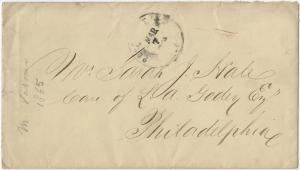 MAR
7
Mrs. Sarah J. Hale
Care of L. A. Godey Esq
Philadelphia
1865